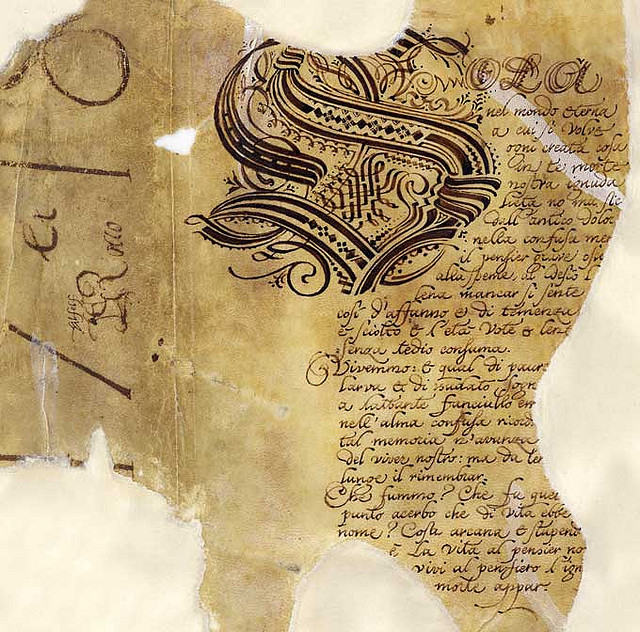 SOLA
nel mondo eterna
a cui si volve
ogni creata cosa
in te, morte
nostra ignuda
lieta no, ma sic
dall'antico dolor
nella confusa men
il pensier grave oscu
alla speme, al desio l
lena mancar si sente
così d'affanno e di temenza
è sciolto e l'età vote e lente
senza tedio consuma.
Vivemmo: e qual di paur
larva e di sudato sogn
a lattante fanciullo err
nell'alma confusa ricord
tal memoria n'avanza
del viver nostro: ma da te
lunge il rimembrar.
Che fummo? Che fu quel
punto acerbo che di vita ebbe
nome? Cosa arcana e stupend
è la vita al pensier no
vivi al pensiero l'ign
morte appar.
Rocco